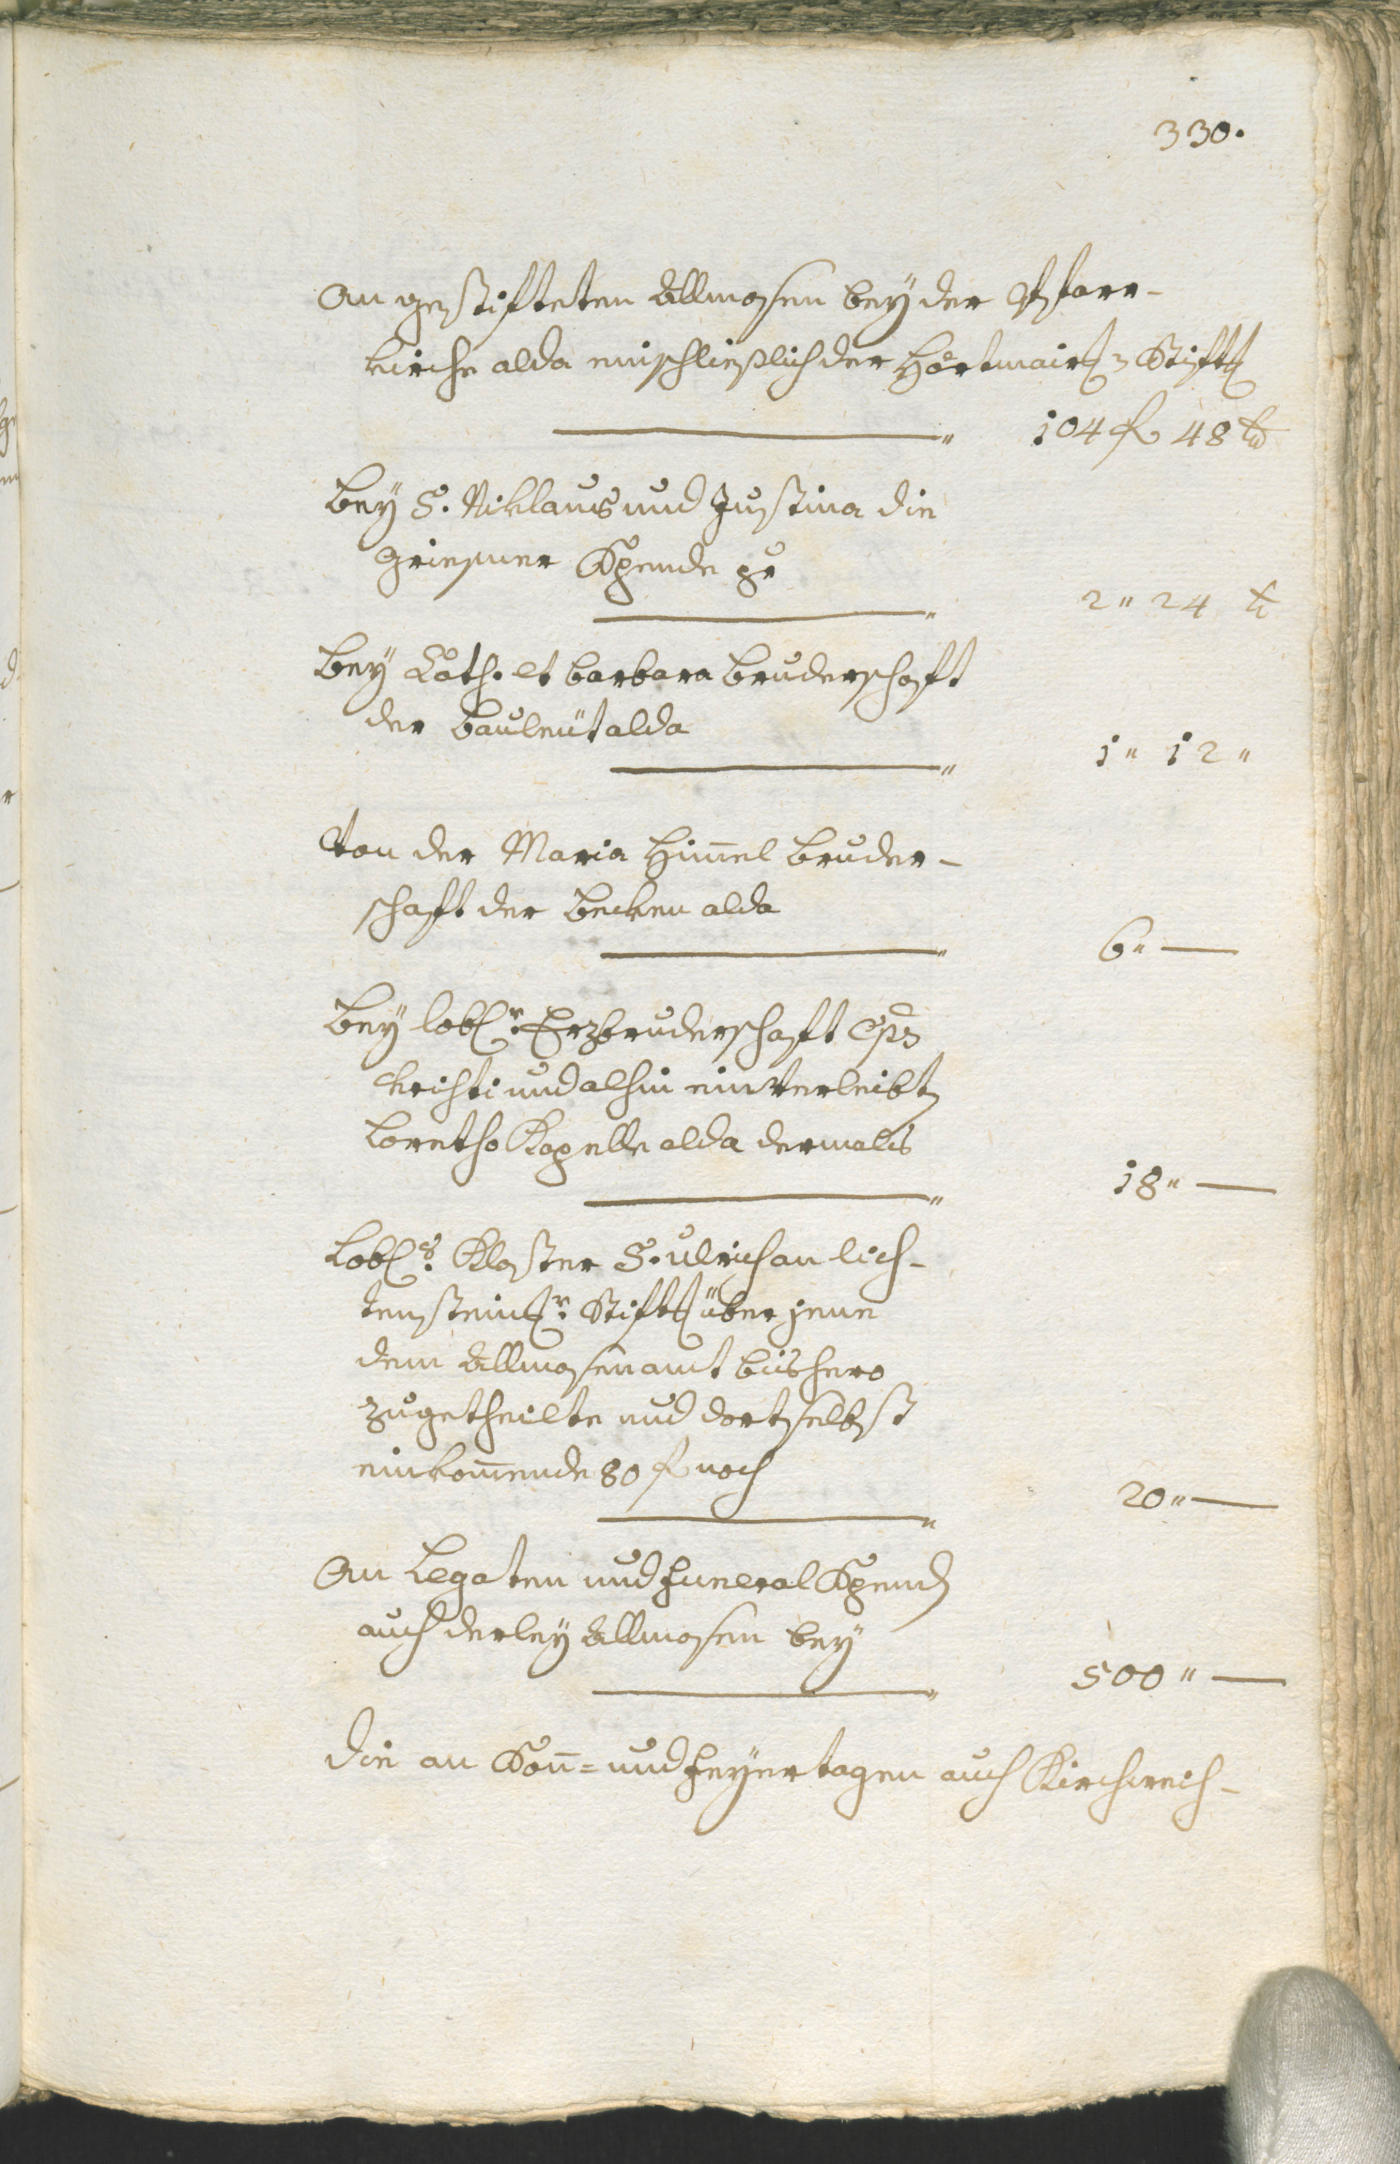 330.
An gestifteten Allmosen bey der Pfarr-
kirche alda einschließlich der Hörtmair Stift
" 104 f 48 kr
bey S. Niklaus und Justina die
Griesner Spende pr
" 2 " 24 kr
bey Cath. et barbara bruderschaft
der bauleüt alda
" 1 " 12 "
Von der Maria Himel bruder-
schaft der becken alda
" 6 " —
bey lobl.r Erzbruderschaft Cps
kristi und alhin einverleibt
Loretho Kapelle alda dermals
" 18 " —
Lobl.s Kloster S. Ulrich an lich-
tensteins.r Stift über jene
dem Allmosenamt bishero
zugetheilte und dortselbst
einkomende 80 f noch
" 20 " —
An Legaten und funeral Spend
auch derley Allmosen bey
" 500 " —
die an Son= und feyertagen auch Kirchweich-